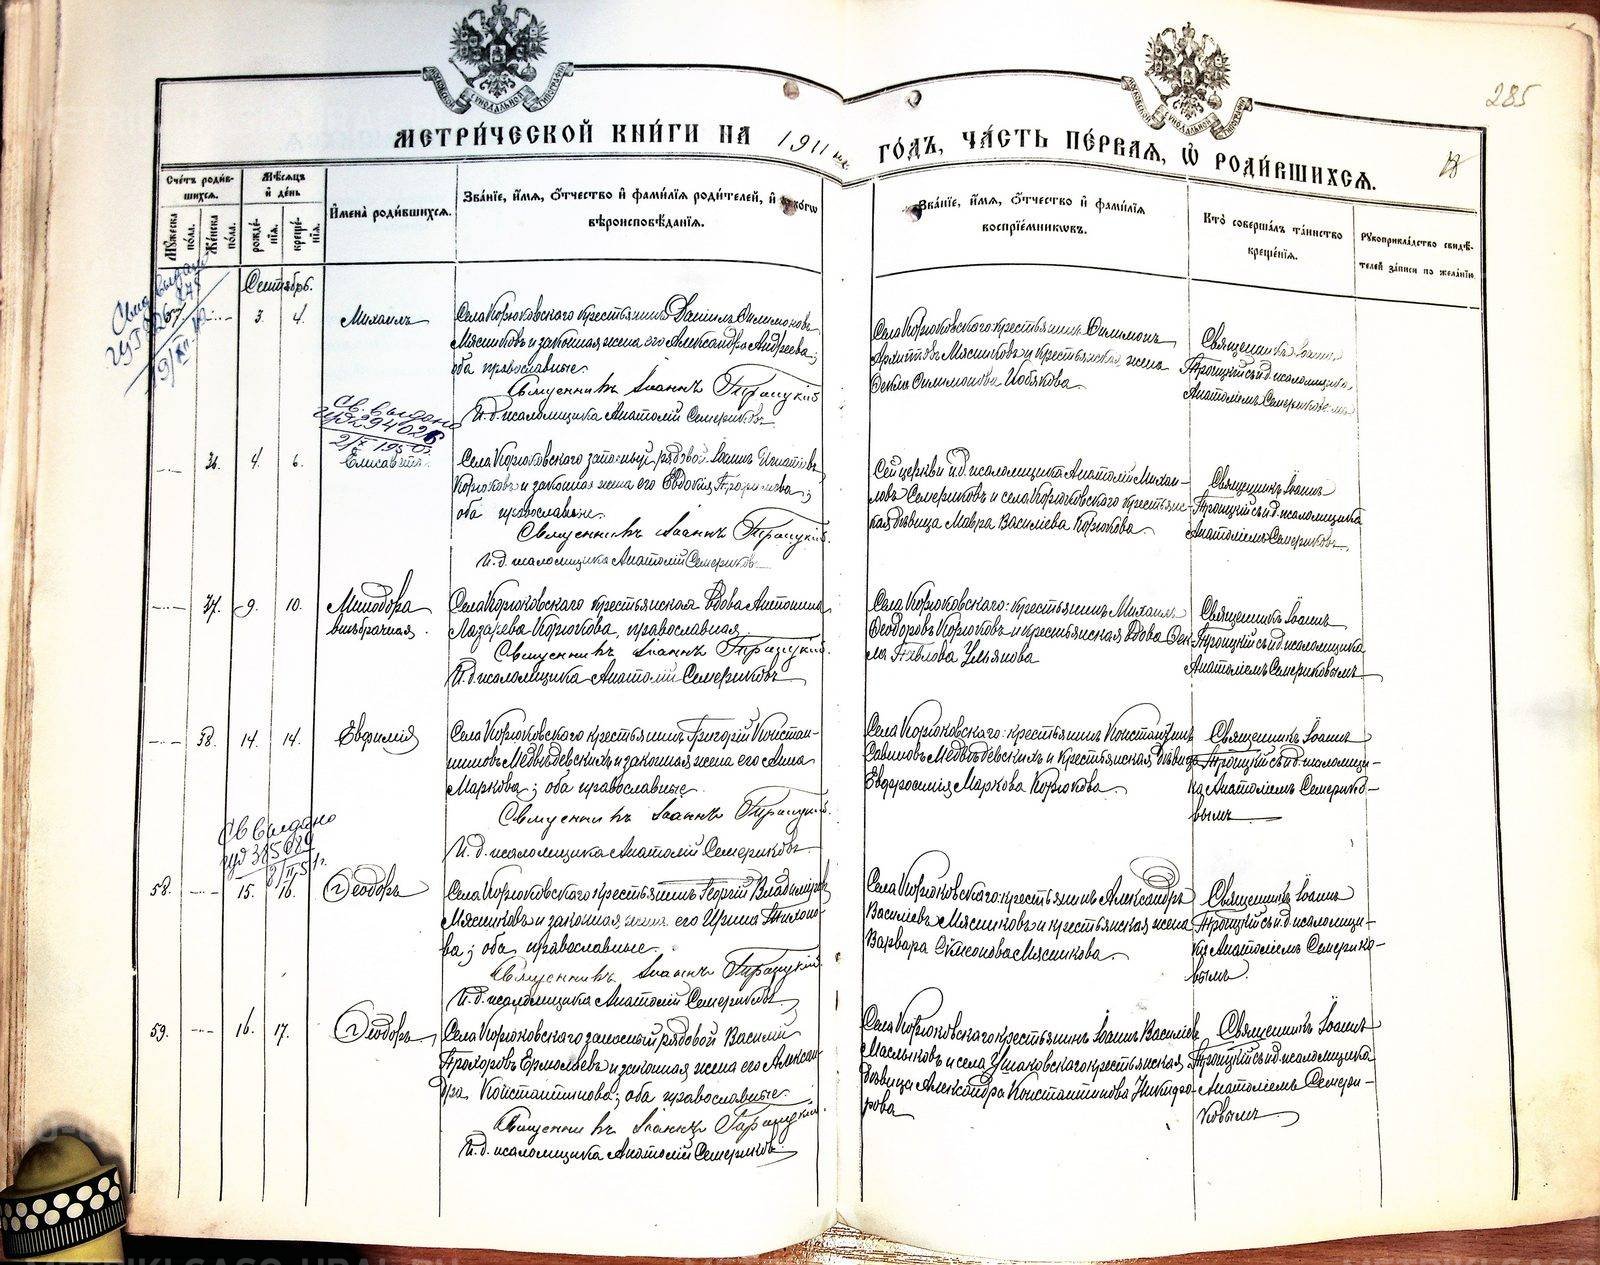 285
МЕТРИ́ЧЕСКОЙ КНИ́ГИ НА 1911 ГО́ДЪ, ЧА́СТЬ ПЕ́РВАѦ, Ѡ РОДИ́ВШИХСѦ.
18
Сче́тъ роди́в-
шихсѧ.
Мѣ́сѧцъ
и҆ де́нь
Мꙋ́жеска по́ла.
Же́нска по́ла.
рожде́-
нїѧ.
креще́-
нїѧ.
И҆мена̀ роди́вшихсѧ.
Зва́нїе, и҆́мѧ, ѻ҆́тчество и҆ фами́лїѧ роди́телей, и҆ како́гѡ
вѣроисповѣ́данїѧ.
Зва́нїе, и҆́мѧ, ѻ҆́тчество и҆ фами́лїѧ
воспрїе́мникѡвъ.
Кто̀ соверша́лъ та́инство
креще́нїѧ.
Рꙋкоприкла́дство свидѣ́-
телей за́писи по жела́нїю.
Сентябрь.
3. 4. Михаилъ
Села Корюковскаго крестьянинъ Данiилъ Филимоновъ
Мясниковъ и законная жена его Александра Андреева;
оба православные.
Священникъ Iоаннъ Троицкiй
И. д. псаломщика Анатолiй Семериковъ
Села Корюковскаго крестьянинъ Филимонъ
Мясниковъ и крестьянская жена
Филимонова
Священникъ Iоаннъ
Троицкiй съ и. д. псаломщика
Анатолiемъ Семериковымъ
Св. выдано
2/X 195
36. 4. 6. Елисавета
Села Корюковскаго запасный рядовой Iоаннъ Игнатiевъ
Корюковъ и законная жена его Евдокiя;
оба православные.
Священникъ Iоаннъ Троицкiй.
И. д. псаломщика Анатолiй Семериковъ
Сей церкви и. д. псаломщика Анатолiй Михаи-
ловъ Семериковъ и села Корюковскаго крестьянс-
кая дѣвица Мавра Василiева Корюкова.
Священникъ Iоаннъ
Троицкiй съ и. д. псаломщика
Анатолiемъ Семериковъ
37. 9. 10. Минодора
внѣбрачная.
Села Корюковскаго крестьянская вдова Антонина
Лазарева Корюкова, православная.
Священникъ Iоаннъ Троицкiй.
И. д. псаломщика Анатолiй Семериковъ
Села Корюковскаго: крестьянинъ Михаилъ
Ѳеодоровъ Корюковъ и крестьянская вдова Ѳек-
ла Павлова Ульянова
Священникъ Iоаннъ
Троицкiй съ и. д. псаломщика
Анатолiемъ Семериковымъ
38. 14. 14. Евфимiя
Села Корюковскаго крестьянинъ Григорiй Констан-
тиновъ Медвѣдевскихъ и законная жена его Анна
Маркова; оба православные.
Священникъ Iоаннъ Троицкiй.
И. д. псаломщика Анатолiй Семериковъ
Села Корюковскаго: крестьянинъ Константинъ
Савиновъ Медвѣдевскихъ и крестьянская дѣвица
Евфросинiя Маркова Корюкова.
Священникъ Iоаннъ
Троицкiй съ и. д. псаломщи-
ка Анатолiемъ Семерико-
вымъ
Св выдано
58. 15. 16. Ѳеодоръ
Села Корюковскаго крестьянинъ Георгiй Владимiровъ
Мясниковъ и законная жена его Ирина Тихоно-
ва; оба православные.
Священникъ Iоаннъ Троицкiй
И. д. псаломщика Анатолiй Семериковъ.
Села Корюковскаго: крестьянинъ Александръ
Василiевъ Мясниковъ и крестьянская жена
Варвара Мясникова.
Священникъ Iоаннъ
Троицкiй съ и. д. псаломщи-
ка Анатолiемъ Семерико-
вымъ.
59. 16. 17. Ѳеодоръ
Села Корюковскаго запасный рядовой Василiй
Прохоровъ Ермолаевъ и законная жена его Алексан-
дра Константинова; оба православные.
Священникъ Iоаннъ Троицкiй.
И. д. псаломщика Анатолiй Семериковъ
Села Корюковскаго крестьянинъ Iоаннъ Василiевъ
Маслыковъ и села Ушаковскаго крестьянская
дѣвица Александра Константинова Никифо-
рова
Священникъ Iоаннъ
Троицкiй съ и. д. псаломщика
Анатолiемъ Семери-
ковымъ